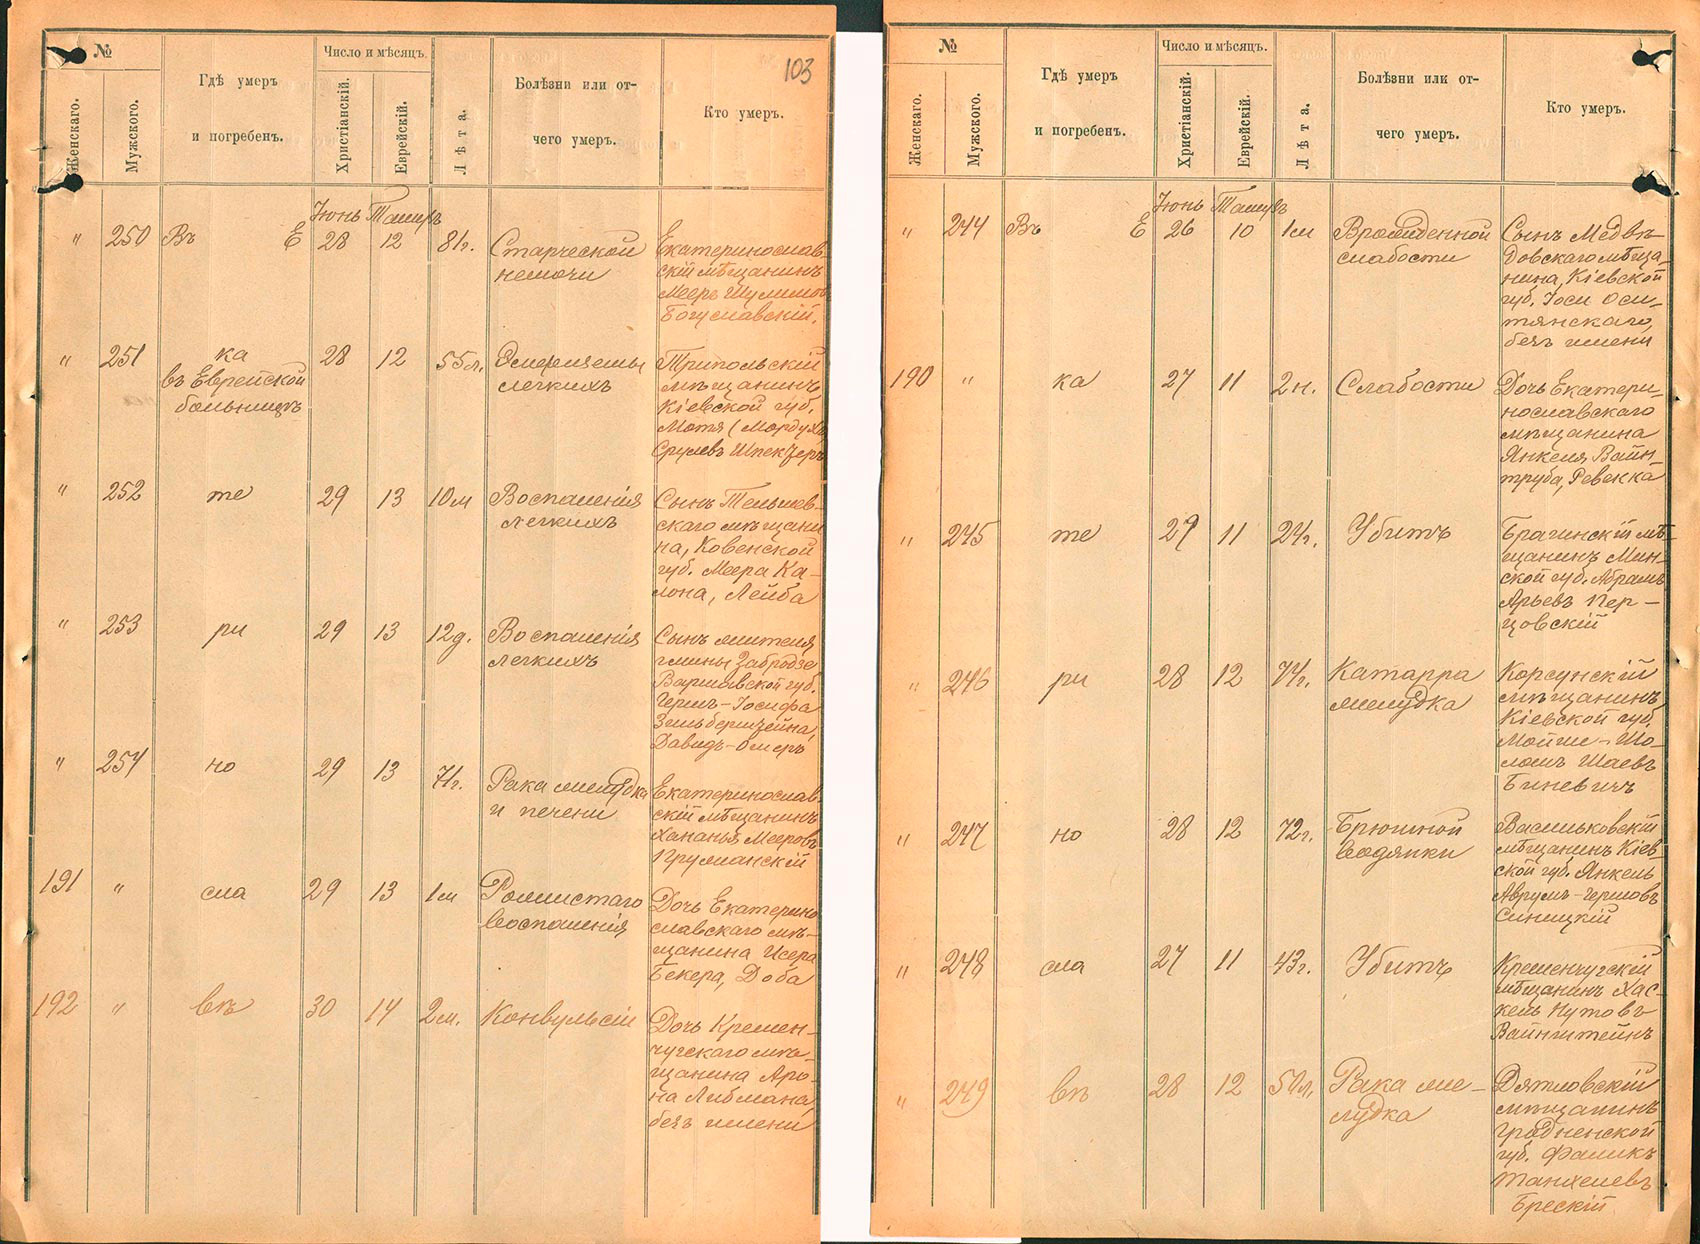 103
№
Женскаго.
Мужского.
Гдѣ умеръ
и погребенъ.
Число и мѣсяцъ.
Христіанскій.
Еврейскій.
Лѣта.
Болѣзни или от-
чего умеръ.
Кто умеръ.
Іюнь Тамузъ
" 250 Въ Е 28 12 81г. Старческой Екатеринослав-
немочи скій мѣщанинъ
Мееръ Шулимовъ
Богуславскій.
" 251 ка 28 12 55л. Эмфиземы Трипольскій
въ Еврейской легкихъ мѣщанинъ
больницѣ Кіевской губ.
Мотя (Мордухъ
Срулевъ Шпекторъ
" 252 те 29 13 10м Воспаленія Сынъ Тельшев-
легкихъ скаго мѣщани
на, Ковенской
губ. Меера Ка-
лона, Лейба
" 253 ри 29 13 12д. Воспаленія Сынъ жителя
легкихъ гмины Забродзе
Варшавской губ.
Герша-Іосифа
Зильберштейна,
Давидъ-Омеръ
" 254 но 29 13 71г. Рака желудка Екатеринослав-
и печени скій мѣщанинъ
Хананья Мееровъ
Прумянскій
191 " сла 29 13 1м Рожистаго Дочь Екатерино
воспаленія славскаго мѣ-
щанина Исера
Бекера, Доба
192 " вѣ 30 14 2м. Конвульсій Дочь Кремен-
чугскаго мѣ-
щанина Аро-
на Либмана,
безъ имени
№
Женскаго.
Мужского.
Гдѣ умеръ
и погребенъ.
Число и мѣсяцъ.
Христіанскій.
Еврейскій.
Лѣта.
Болѣзни или от-
чего умеръ.
Кто умеръ.
Іюнь Тамузъ
" 244 Въ Е 26 10 1м Врожденной Сынъ Медвѣ-
слабости довскаго мѣща-
нина, Кіевской
губ. Іоси Оси-
тянскаго,
безъ имени
190 " ка 27 11 2н. Слабости Дочь Екатери-
нославскаго
мѣщанина
Янкеля Вайн-
труба, Ревекка
" 245 те 27 11 24г. Убитъ Брагинскій мѣ-
щанинъ Мин-
ской губ. Абрамъ
Арьевъ Пер-
цовскій
" 246 ри 28 12 74г. Катарра Корсунскій
желудка мѣщанинъ
Кіевской губ.
Мойше-Шо-
ломъ Шаевъ
Биневичъ
" 247 но 28 12 72г. Брюшной Васильковскій
водянки мѣщанинъ Кіев-
ской губ. Янкель
Аврумъ-Гершовъ
Синицкій
" 248 сла 27 11 43г. Убитъ Кременчугскій
мѣщанинъ Хас-
кель Нутовъ
Вайнштейнъ
" 249 вѣ 28 12 50л. Рака же- Дятловскій
лудка мѣщанинъ
Гродненской
губ. Фаликъ
Танхелевъ
Брескій